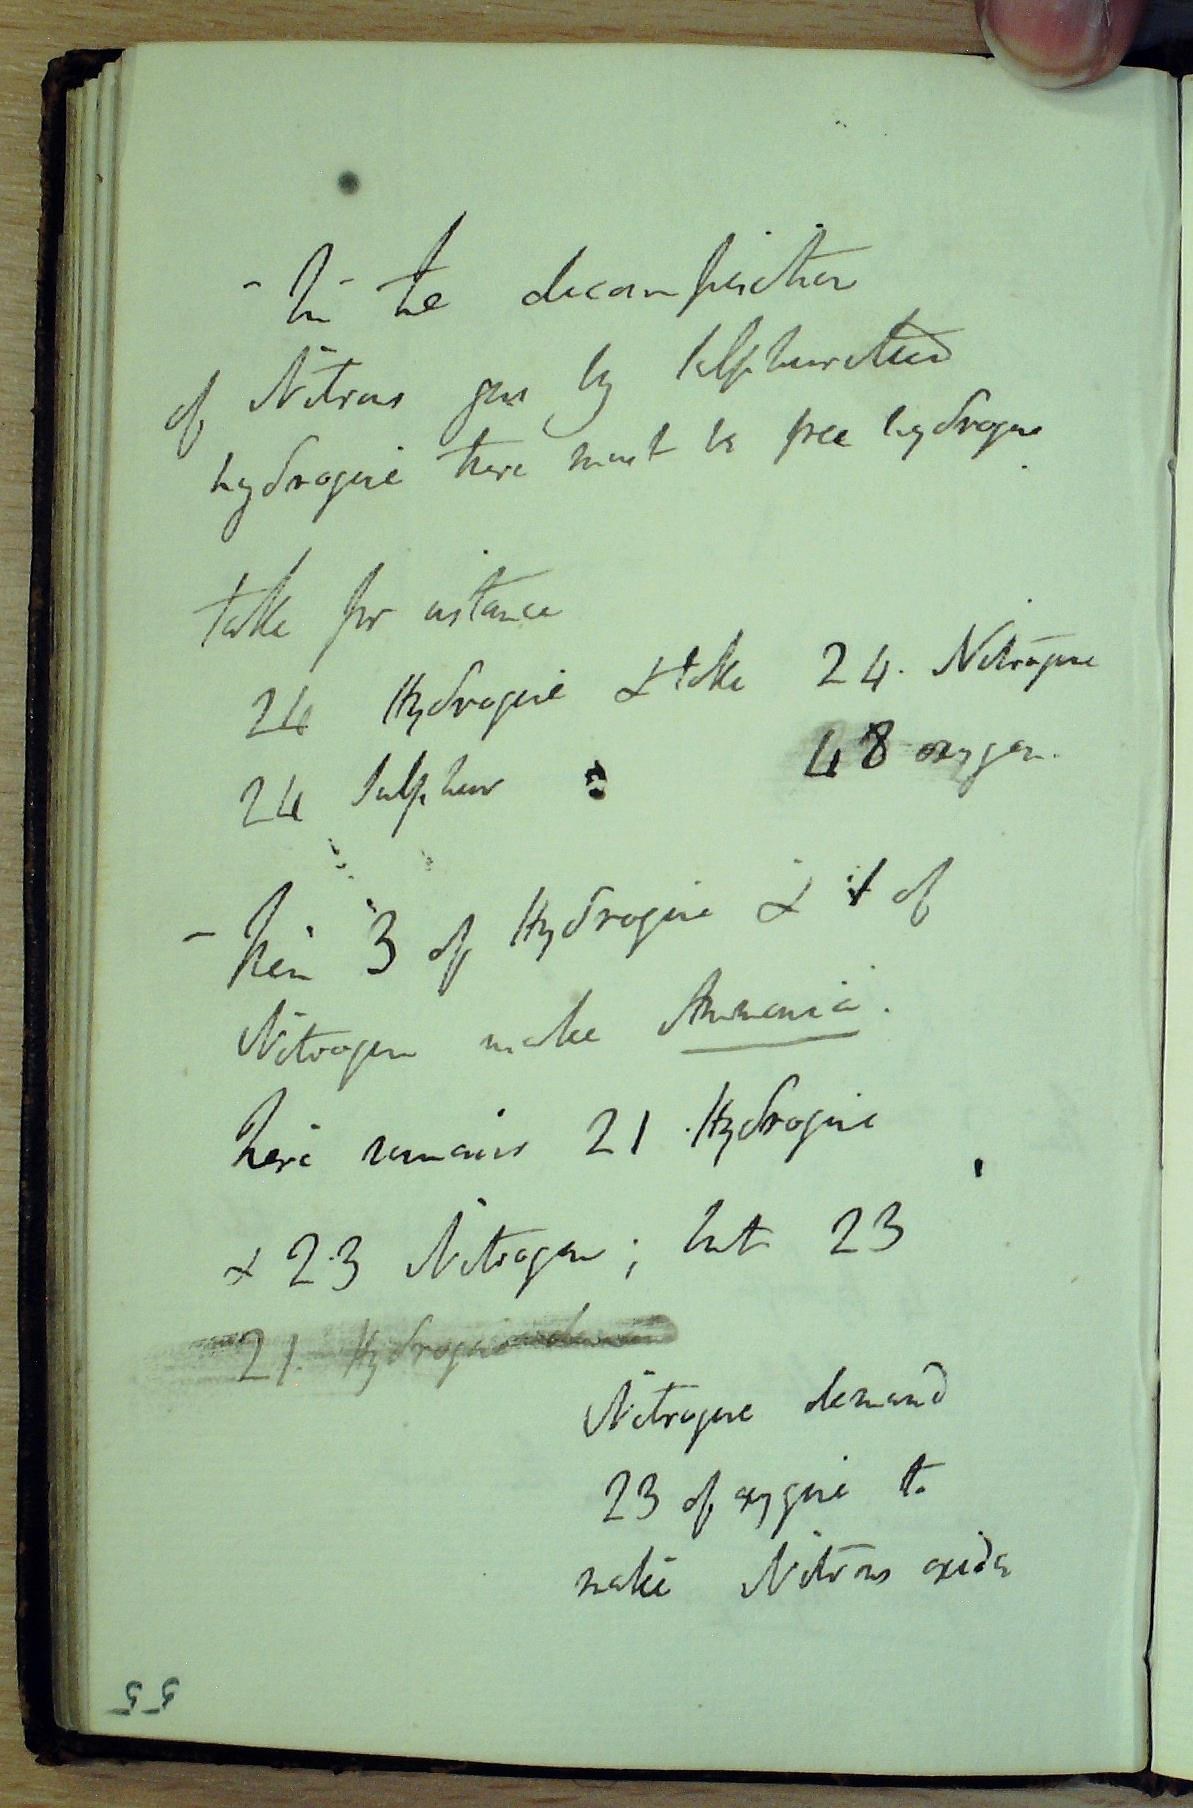 - In the decomposition
of Nitrous gas by sulphuretted
hydrogene there must be free hydrogene
take for instance
24 Hydrogene & take 24. Nitrogene
24 Sulphur 48 oxygen.
- then 3 of Hydrogene & 1 of
Nitrogen make Ammonia.
there remains 21 Hydrogene
& 23 Nitrogen; but 23
21. Hydrogene
Nitrogene demand
23 of oxygene to
make Nitrous oxide
55